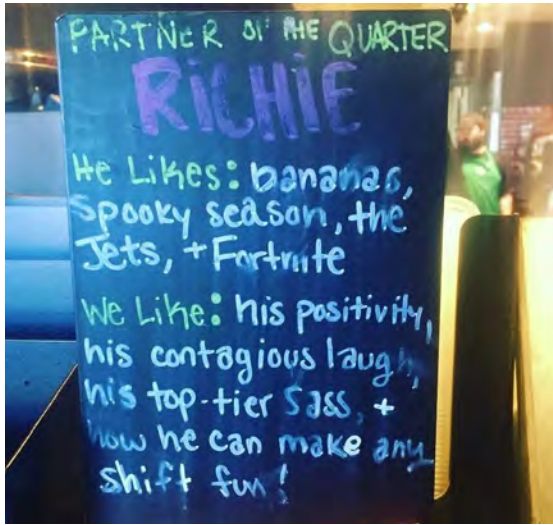 PARTNER OF THE QUARTER
RICHIE
He Likes: bananas,
Spooky season, the
Jets, + Fortnite
We Like: his positivity,
his contagious laugh,
his top-tier Sass, +
how he can make any
shift fun!